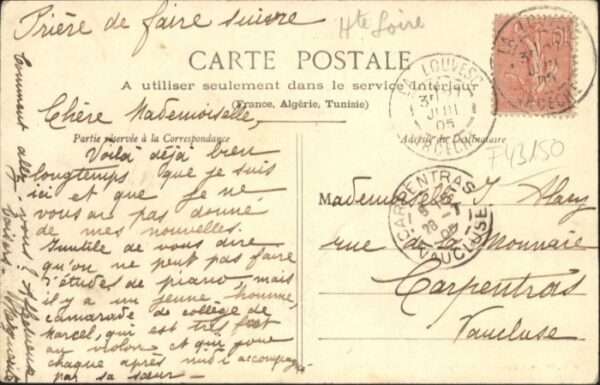 Prière de faire suivre
Hte Loire
CARTE POSTALE
A utiliser seulement dans le service intérieur
(France, Algérie, Tunisie)
Partie réservée à la Correspondance
Adresse du Destinataire
Chère Mademoiselle,
Voilà déjà bien
longtemps que je suis
ici et que je ne
vous ai pas donné
de mes nouvelles.
Inutile de vous dire
qu'on ne peut pas faire
d'études de piano, mais
il y a un jeune homme,
camarade de collège de
Marcel, qui est très fort
au violon et qui joue
chaque après midi accompagné
par sa sœur-
Comment allez-vous?
baisers.
Mademoiselle J. Alary
rue de la Monnaie
Carpentras
Vaucluse
LALOUVESC
31
JUIL
05
ARDECHE
CARPENTRAS
VAUCLUSE
F43/50